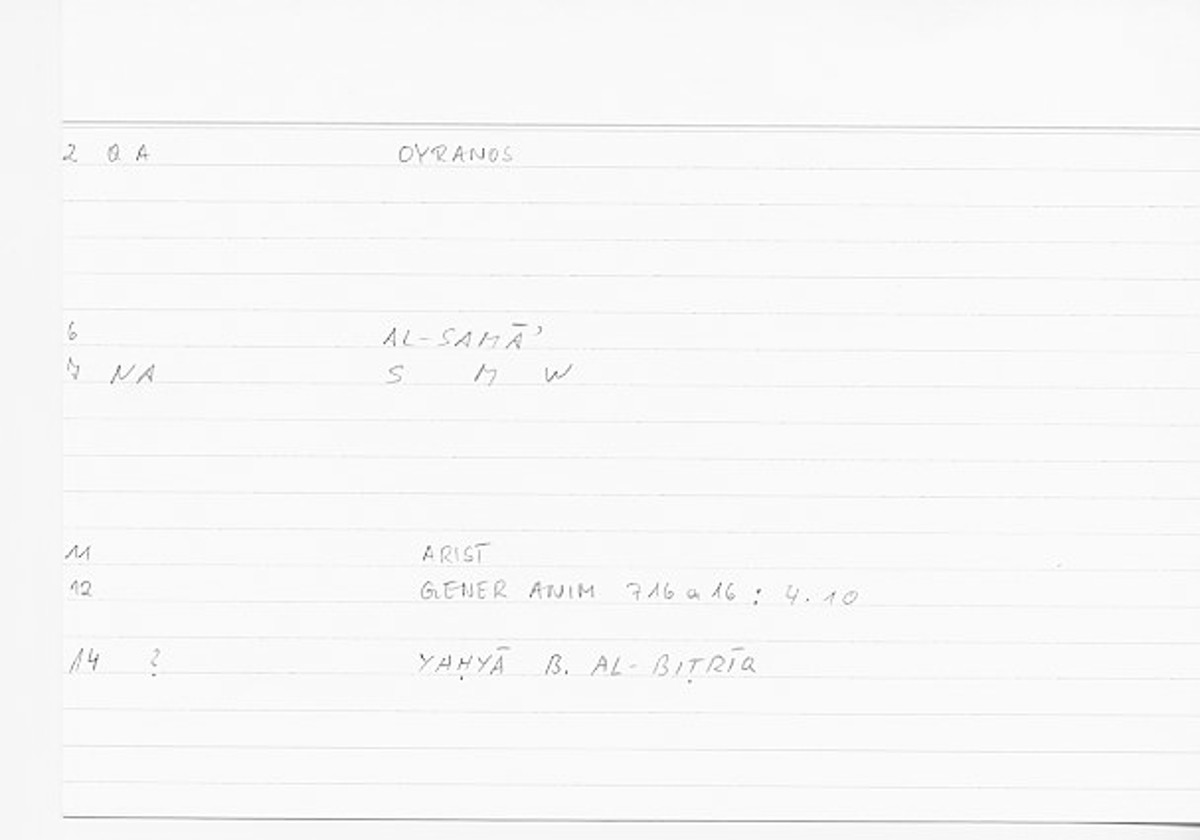 2 Q A OYRANOS
6 AL-SAMĀʾ
7 NA S M W
11 ARIST
12 GENER ANIM 716 a 16 : 4.10
14 ? YAḤYĀ B. AL-BIṬRĪQ